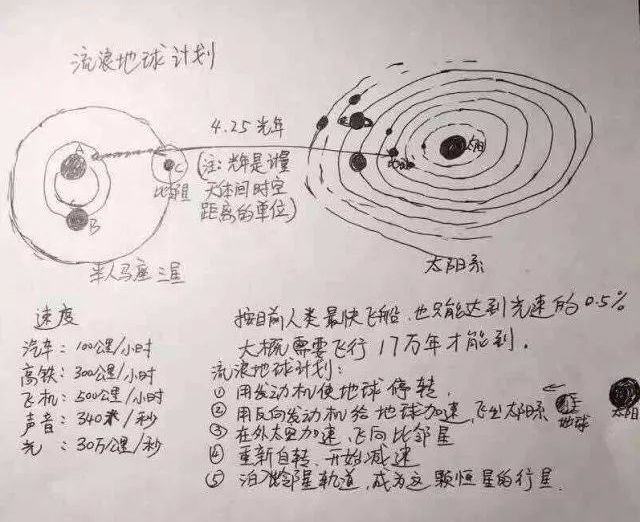 流浪地球计划
4.25光年
(注:光年是计量
天体间时空
距离的单位)
A
B
C
比邻星
地球
太阳
半人马座三星
太阳系
速度
汽车:100公里/小时
高铁:300公里/小时
飞机:500公里/小时
声音:340米/秒
光:30万公里/秒
按目前人类最快飞船,也只能达到光速的0.5%
大概需要飞行17万年才能到.
流浪地球计划:
① 用发动机使地球停转,
② 用反向发动机给地球加速,飞出太阳系
③ 在外太空加速,飞向比邻星
④ 重新自转,开始减速
⑤ 泊入比邻星轨道,成为这颗恒星的行星.
地球
太阳